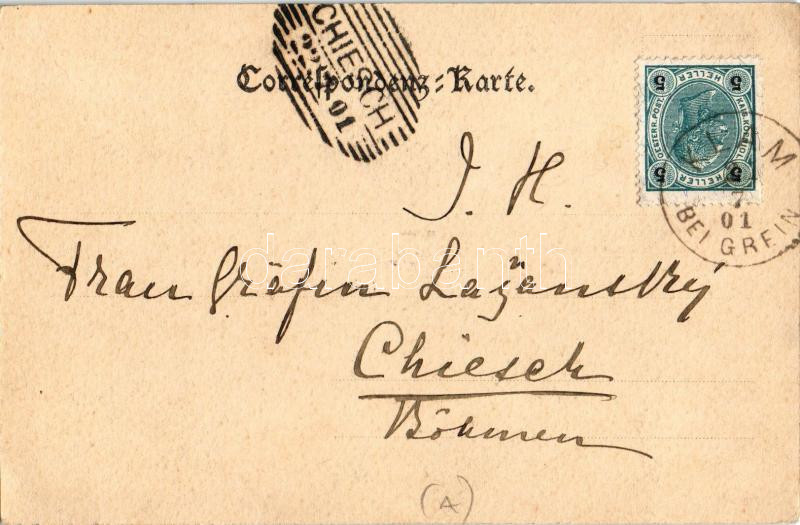 CHIESCH
01
Correspondenz-Karte.
5 HELLER 5
KAIS. KÖNIGL.
OESTERR. POST.
5 HELLER 5
01
BEI GREIN
I. H.
Frau Gräfin Lažanský
Chiesch
Böhmen
(A)
darabanth